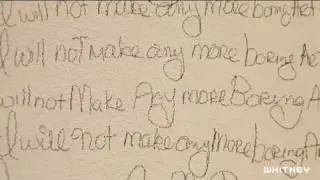 I will not make any more boring Art
I will not make any more boring Ar
will not Make Any more Boring A
I will not make any More boring Ar
WHITNEY